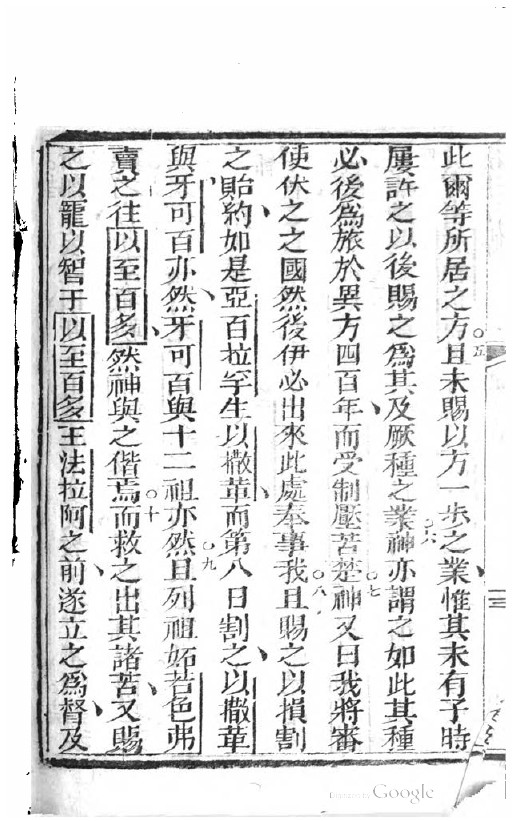 此爾等所居之方且未賜以方一步之業惟其未有子時
五
六
屢許之以後賜之為其及厥種之業神亦謂之如此其種
七
必後為旅於異方四百年而受制壓苦楚神又曰我將審
八
使伏之之國然後伊必出來此處奉事我且賜之以損割
之貽約如是亞百拉罕生以撒革而第八日割之以撒革
九
與牙可百亦然牙可百與十二祖亦然且列祖妬若色弗
十
賣之往以至百多然神與之偕焉而救之出其諸苦又賜
之以寵以智于以至百多王法拉阿之前遂立之為督及
Digitized by Google